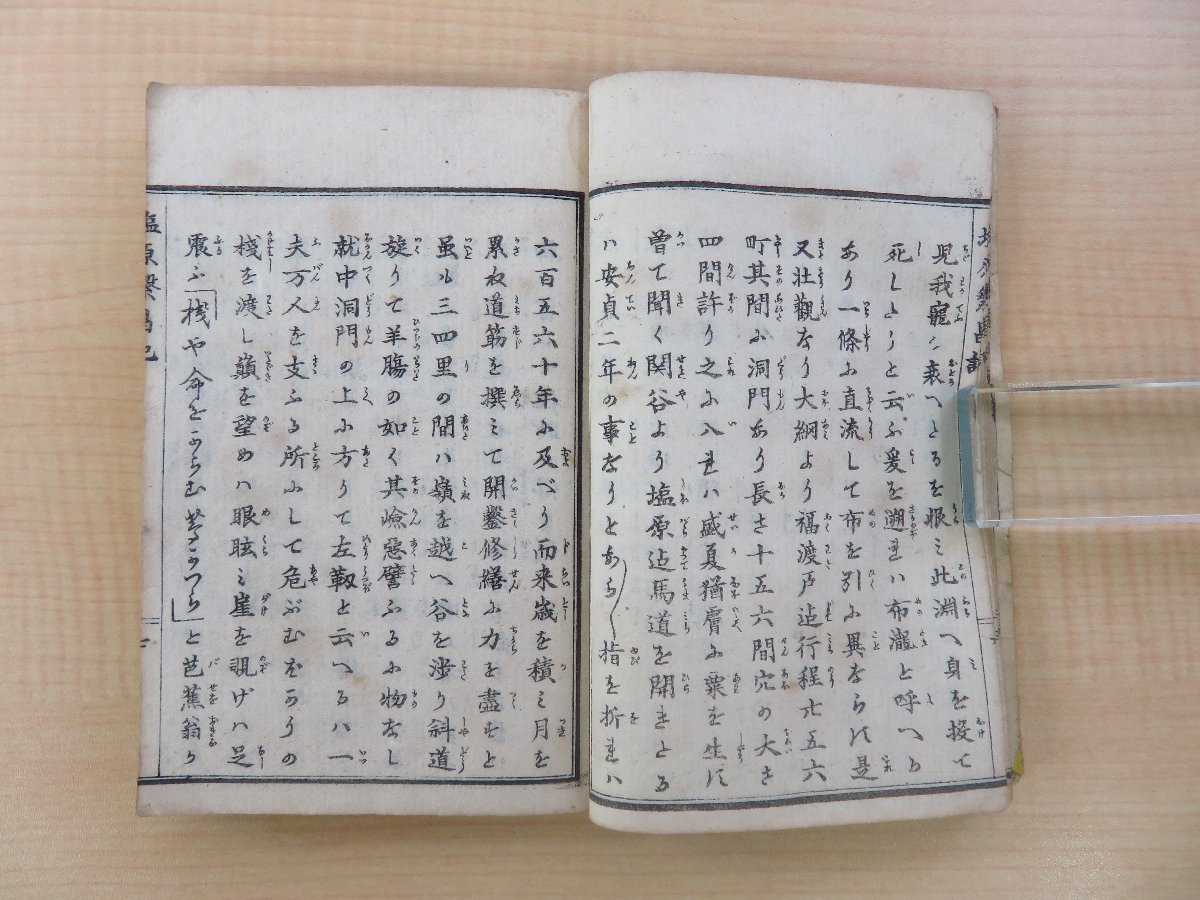 児我寵の衰へたるを恨ミ此淵へ身を投て
死したりと云ふ爰を遡れハ布瀧と呼へる
あり一條に直流して布を引に異ならす是
又壮觀なり大綱より福渡戸迠行程廿五六
町其間に洞門あり長さ十五六間穴の大さ
四間許り之に入れハ盛夏猶膚に粟を生す
曽て聞く関谷より塩原迠馬道を開れたる
ハ安貞二年の事なりとあら指を折れハ
六百五六十年に及べり而来歳を積ミ月を
累ね道筋を撰ミて開鑿修繕に力を盡すと
虽ル三四里の間ハ嶺を越へ谷を渉り斜道
旋りて羊膓の如く其嶮惡譬ふるに物なし
就中洞門の上に方りて左靱と云へるハ一
夫万人を支ふる所にして危ぶむばかりの
棧を渡し巓を望めハ眼眩ミ崖を覗げハ足
震ふ「棧や命をからむ蔦かつら」と芭蕉翁か
塩原繁昌記